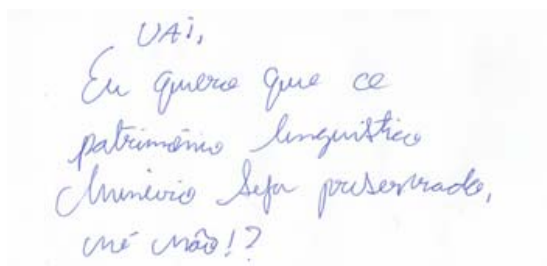 UAi,
Eu quero que ce
patrimônio linguístico
mineiro seja preservado,
né não!?